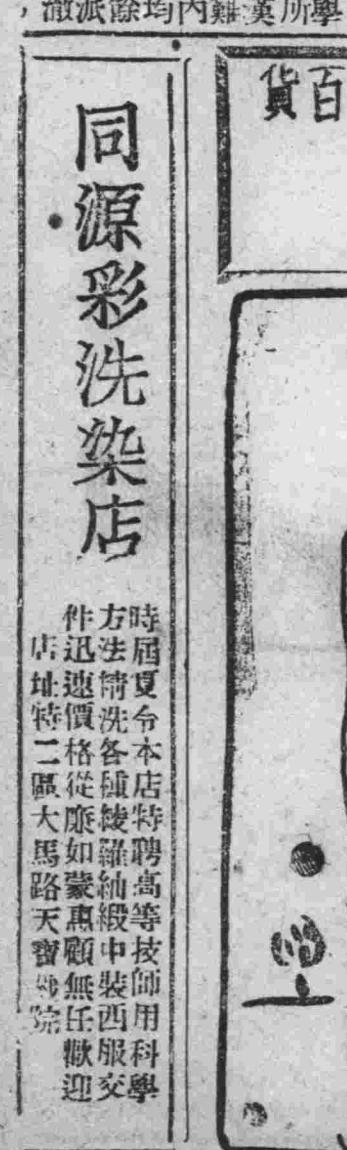 學所漢難內均餘派澈，
百貨
同源彩洗染店
時屆夏令本店特聘高等技師用科學
方法精洗各種綾羅紬緞中裝西服交
件迅速價格從廉如蒙惠顧無任歡迎
店址特二區大馬路天寶戲院